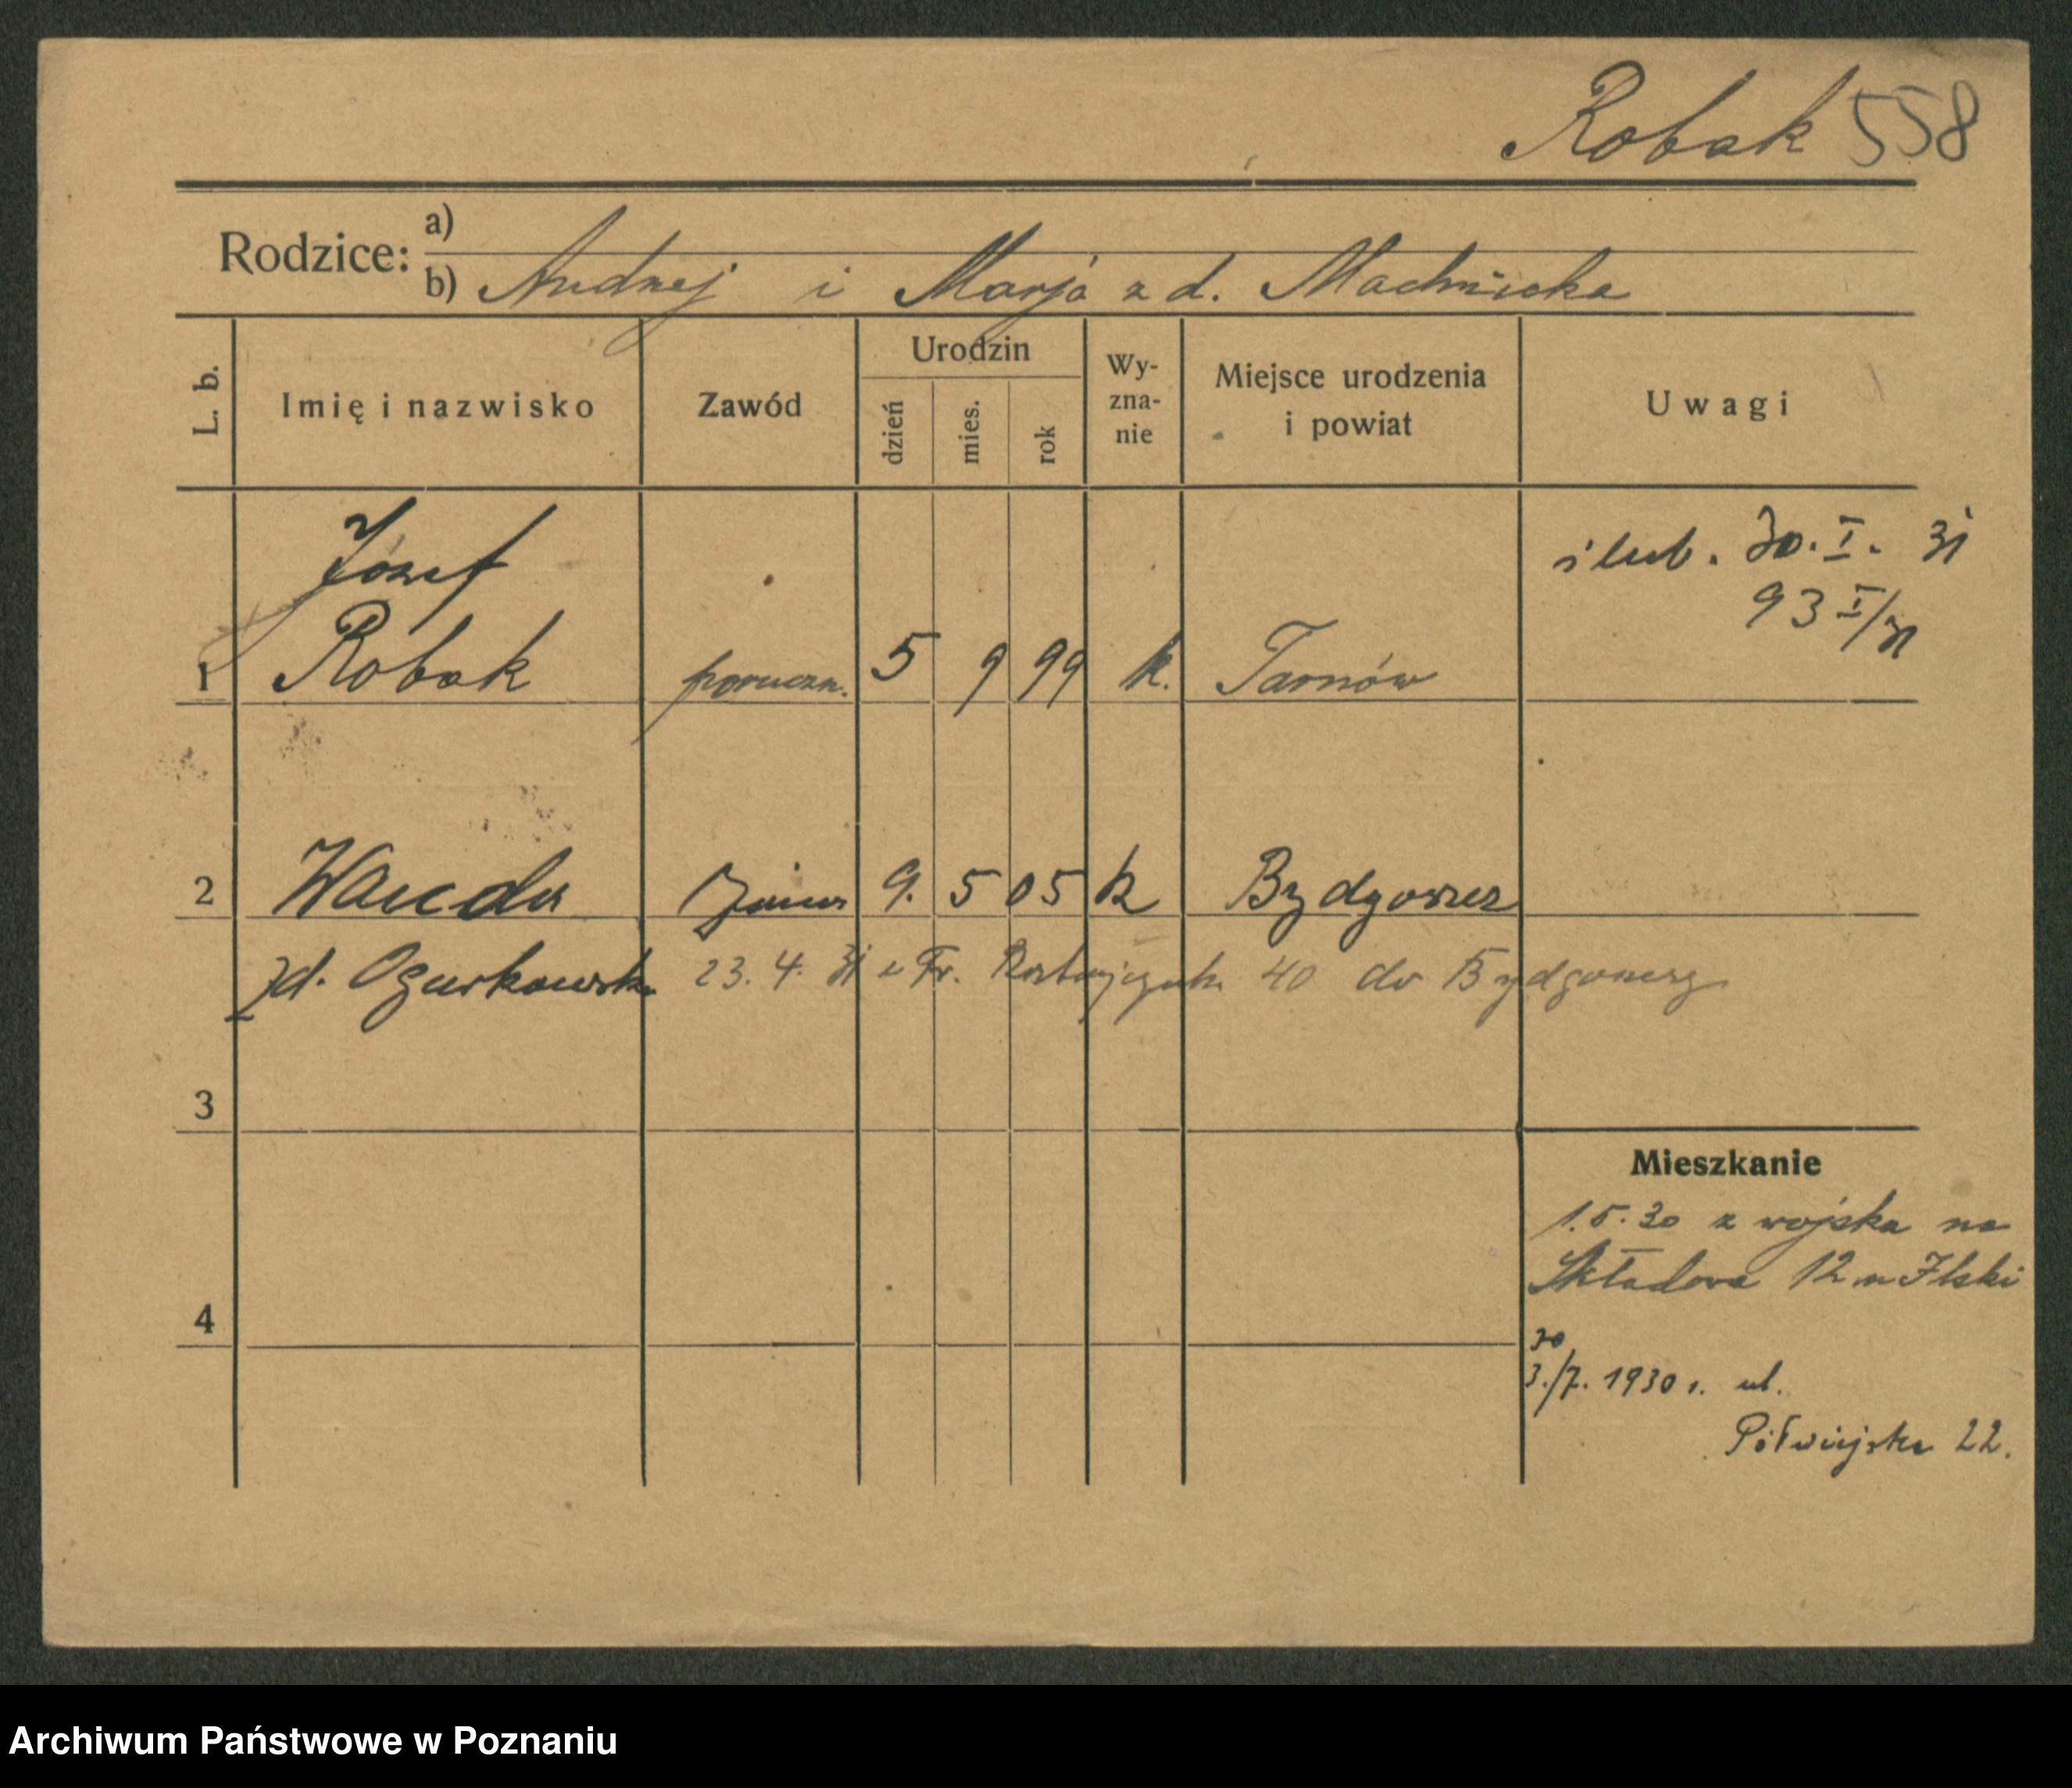 Robak 558
Rodzice: a)
b) Andrzej i Marja z d. Machnicka
L. b.
Imię i nazwisko
Zawód
Urodzin
dzień
mies.
rok
Wy-
zna-
nie
Miejsce urodzenia
i powiat
Uwagi
Józef
ślub. 30. I. 31
93 I/31
1 Robak poruczn. 5 9 99 k. Tarnów
2 Wanda 9. 5 05 k Bydgoszcz
zd. Ogurkowska 23. 4. 31 z Fr. Ratajczaka 40 do Bydgoszcz
3
Mieszkanie
1.5.30 z wojska na
Składowa 12 m Ilski
4
30
3./7. 1930 r. ul.
Półwiejska 22.
Archiwum Państwowe w Poznaniu